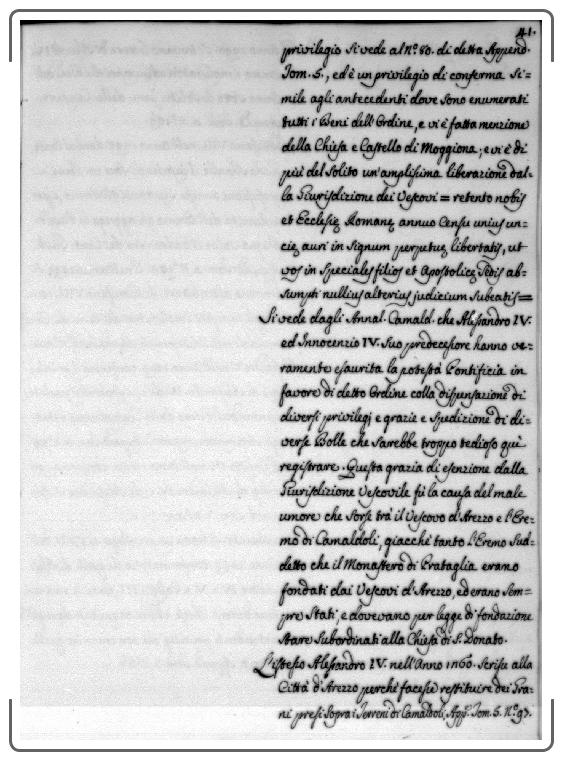 41.
privilegio si vede al N.º 80. di detta Append.
Tom. 5., ed è un privilegio di conferma si=
mile agli antecedenti dove sono enumerati
tutti i Beni dell'Ordine, e vi è fatta menzione
della Chiesa e Castello di Moggiona; e vi è di
più del solito un'amplissima liberazione dal=
la Giurisdizione dei Vescovi = retento nobis
et Ecclesię Romanę annuo Censu unius un=
cię auri in signum perpetuę libertatis, ut
vos in speciales filios et Apostolicę Sedis ab=
sumpti nullius alterius judicium subeatis =
Si vede dagli Annal. Camald. che Alessandro IV.
ed Innocenzio IV. suo predecessore hanno ve=
ramente esaurita la potestà Pontificia in
favore di detto Ordine colla dispensazione di
diversi privilegj e grazie e spedizione di di=
verse Bolle che sarebbe troppo tedioso quì
registrare. Questa grazia di esenzione dalla
Giurisdizione Vescovile fù la causa del male
umore che sorse trà il Vescovo d'Arezzo e l'Ere=
mo di Camaldoli, giacchè tanto l'Eremo sud=
detto che il Monastero di Prataglia erano
fondati dai Vescovi d'Arezzo, ed erano sem=
pre stati, e dovevano per legge di fondazione
stare subordinati alla Chiesa di S. Donato.
L'istesso Alessandro IV. nell'Anno 1260. scrisse alla
Città d'Arezzo perchè facesse restituire dei Gra=
ni presi sopra i Terreni di Camaldoli, App. Tom. 5. N.º 97.